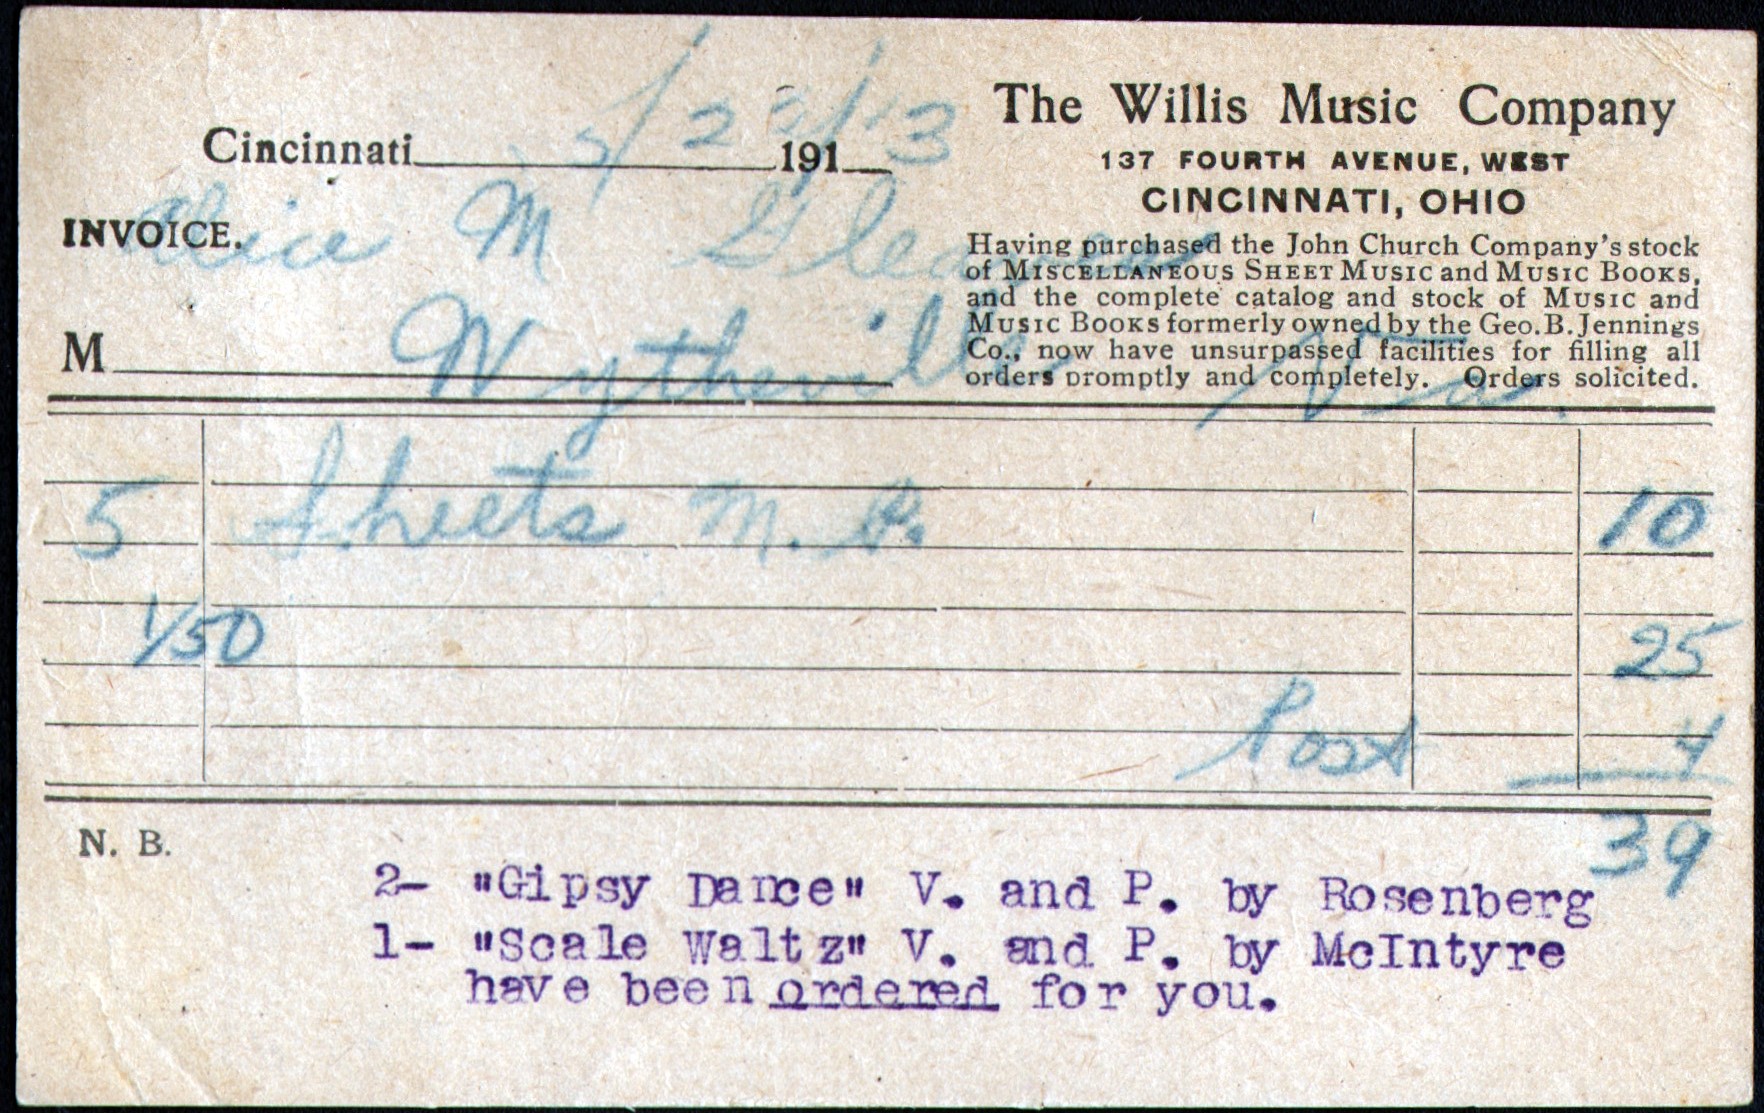 The Willis Music Company
137 FOURTH AVENUE, WEST
CINCINNATI, OHIO
Having purchased the John Church Company's stock
of MISCELLANEOUS SHEET MUSIC and MUSIC BOOKS,
and the complete catalog and stock of MUSIC and
MUSIC BOOKS formerly owned by the Geo. B. Jennings
Co., now have unsurpassed facilities for filling all
orders promptly and completely. Orders solicited.
Cincinnati 5/23/13 191
INVOICE. Alice M Gleaves
M Wytheville Va.
5 Sheets M. P. 10
1/50 25
Post 4
39
N. B.
2- "Gipsy Dance" V. and P. by Rosenberg
1- "Scale Waltz" V. and P. by McIntyre
have been ordered for you.